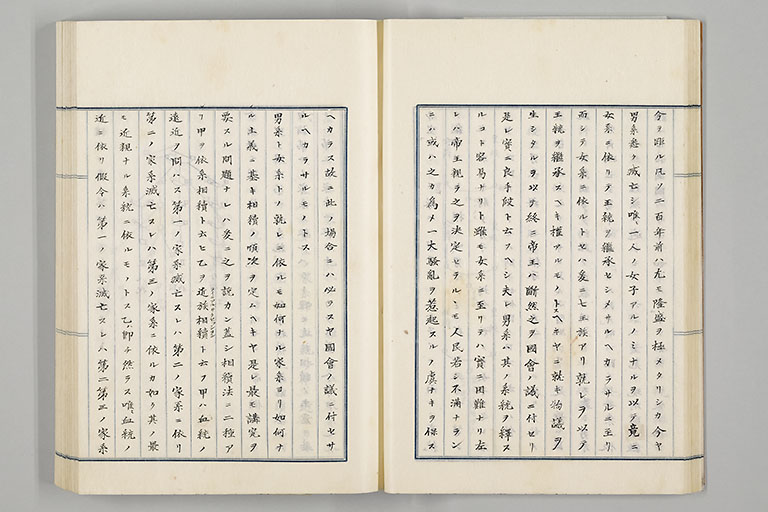 今ヲ距ル凡ソ二百年前ハ尤モ隆盛ヲ極メタリシカ今ヤ
男系悉ク滅亡シ唯一人ノ女子アルノミナルヲ以テ竟ニ
女系ニ依リテ王統ヲ継承セシメサルヘカラサルニ至リ
而シテ女系ニ依ルトセハ爰ニ七王族アリ就レヲ以テ
王統ヲ継承スヘキ権アルモノトスヘキヤニ就キ物議ヲ
生シタルヲ以テ終ニ帝王ハ断然之ヲ國會ノ議ニ付セリ
是レ實ニ良手段ト云フヘシ夫レ男系ハ其ノ系統ヲ釋ス
ルコト容易ナリト雖モ女系ニ至リテハ實ニ困難ナリ左
レハ帝王親ラ之ヲ決定セラルヽモ人民若シ不満ナラン
ニハ或ハ之カ為メ一大騒乱ヲ惹起スルノ虞ナキヲ保ス
ヘカラス故ニ此ノ場合ニハ必ラスヤ國會ノ議ニ付セサ
ルヘカラサルモノトス
男系ト女系トノ孰レニ依ルモ如何ナル家系ヨリ如何ナ
ル主義ニ基キ相續ノ順次ヲ定ムヘキヤ是レ最モ講究ヲ
要スル問題ナレハ爰ニ之ヲ説カン蓋シ相續法ニ二種ア
リ甲ヲ依系相續ト云ヒ乙ヲ近族相續ト云フ甲ハ血統ノ
遠近ヲ問ハス第一ノ家系滅亡スレハ第二ノ家系ニ依リ
第二ノ家系滅亡スレハ第三ノ家系ニ依ルカ如ク其ノ最
モ近親ナル系統ニ依ルモノトス乙ハ即チ然ラス唯血統ノ
近ニ依リ假令ハ第一ノ家系滅亡スレハ第二第三ノ家系